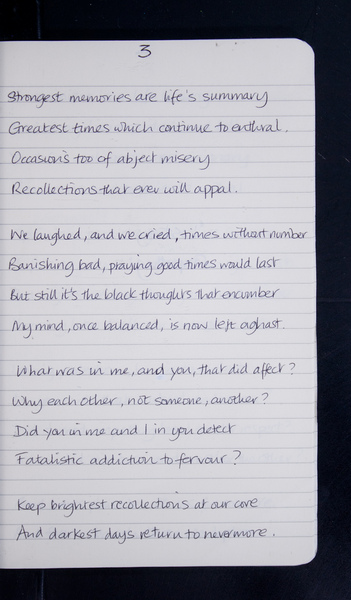 3
Strongest memories are life's summary
Greatest times which continue to enthral.
Occasions too of abject misery
Recollections that ever will appal.
We laughed, and we cried, times without number
Banishing bad, praying good times would last
But still it's the black thoughts that encumber
My mind, once balanced, is now left aghast.
What was in me, and you, that did affect?
Why each other, not someone, another?
Did you in me and I in you detect
Fatalistic addiction to fervour?
Keep brightest recollections at our core
And darkest days return to nevermore.